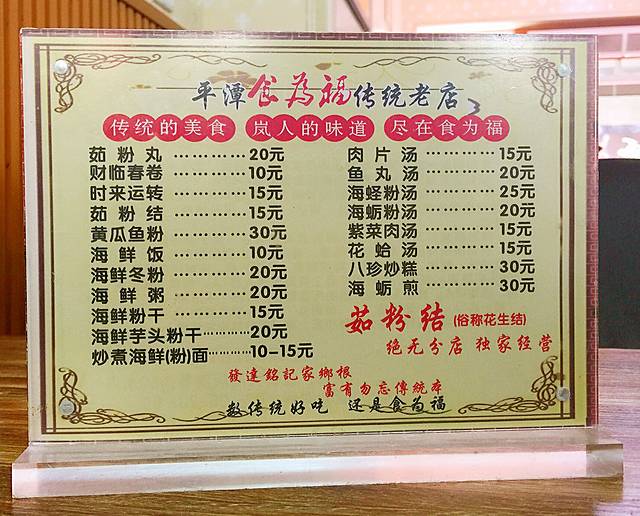 平潭食为福传统老店
传统的美食 岚人的味道 尽在食为福
茹粉丸 …………20元
财临春卷 …………10元
时来运转 …………15元
茹粉结 …………15元
黄瓜鱼粉 …………30元
海鲜饭 …………10元
海鲜冬粉 …………20元
海鲜粥 …………20元
海鲜粉干 …………15元
海鲜芋头粉干…………20元
炒煮海鲜(粉)面…………10-15元
肉片汤 …………15元
鱼丸汤 …………20元
海蛏粉汤 …………25元
海蛎粉汤 …………20元
紫菜肉汤 …………15元
花蛤汤 …………15元
八珍炒糕 …………30元
海蛎煎 …………30元
茹粉结 (俗称花生结)
绝无分店 独家经营
發達銘記家鄉根
富有勿忘傳統本
数传统好吃 还是食为福